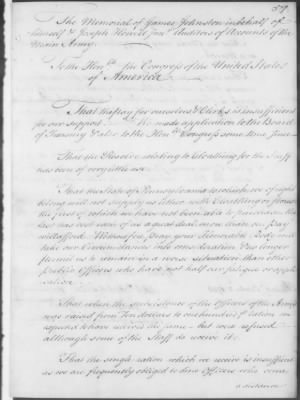 59.
The Memorial of James Johnston in behalf of
himself & Joseph Howell Junr Auditors of Accounts of the
Main Army.
To the Honble the Congress of the United States
of America
That the pay for ourselves & Clerks is insufficient
for our support made application to the Board
of Treasury & also to the Honble Congress some time since
That the Resolve relating to Cloathing for the Staff
has been of very little use.
That the State of Pennsylvania to which we of right
belong will not supply us either with Cloathing or
the first of which we have not been able to purchase the
last has cost us of a quarter more than our pay
will afford. We therefore pray your Honorable Body will
take our Circumstances into consideration & no longer
suffer us to remain in a worse situation than other
public Officers who have not half our fatigue or appli-
cation.
That when the subsistence of the Officers of the Army
was raised from Ten dollars to one hundred ration we
expected to have received the same - but were refused
although some of the Staff do receive it.
That the single ration which we receive is insufficient
as we are frequently obliged to dine Officers who come
a distance